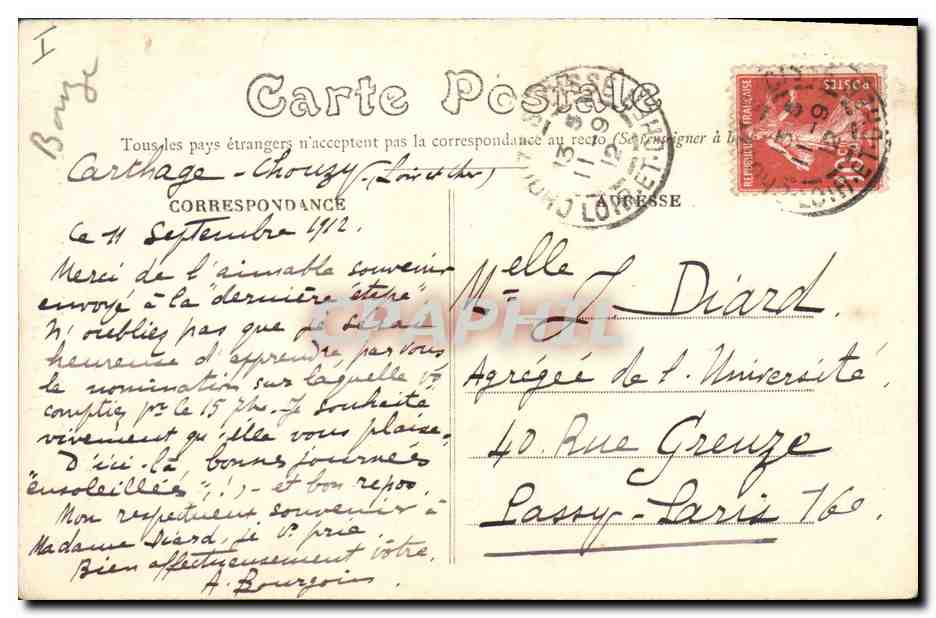 I
Bouze
Carte Postale
Tous les pays étrangers n'acceptent pas la correspondance au recto (Se renseigner à la
Carthage - Chouzy - (Loir et cher)
CORRESPONDANCE
ADRESSE
Ce 11 Septembre 1912.
Merci de l'aimable souvenir
envoyé à la "dernière étape"
N'oubliez pas que je serai
heureuse d'apprendre, par vous
la nomination sur laquelle vs
comptiez pr le 15 7bre. Je souhaite
vivement qu'elle vous plaise.
D'ici-là, bonnes journées
"ensoleillées" (!) - et bon repos.
Mon respectueux souvenir à
Madame Diard, je vs prie
Bien affectueusement vôtre.
A. Bourgoin
Melle J. Diard.
Agrégée de l'Université
40. Rue Greuze
Passy-Paris 16e.
CHOUZY
LOIR-ET-CHER
13
11
5
9
12
REPUBLIQUE FRANÇAISE
POSTES
10
CPAPHIL